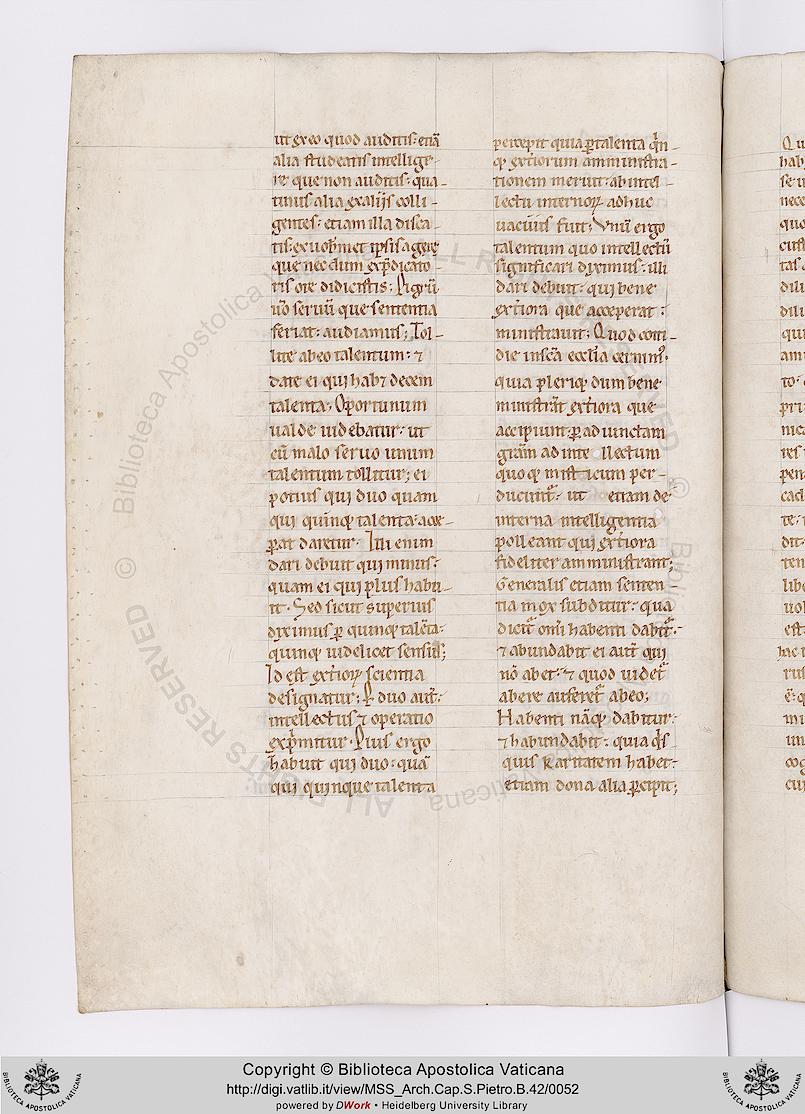 ut ex eo quod auditis: etiā
alia studeatis intellige-
re que non auditis: qua-
tinus alia ex alijs colli-
gentes: etiam illa disca-
tis: ex uobmet ipsis agere
que necdum ex p̄dicato-
ris ore didicistis: Pigrū
ūo seruū que sententia
feriat: audiamus; Tol-
lite ab eo talentum: ⁊
date ei qui habꝫ decem
talenta; Oportunum
ualde uidebatur: ut
cū malo seruo unum
talentum tollitur; ei
potius qui duo quam
qui quinqꝫ talenta: acce-
ꝑat daretur: Illi enim
dari debuit qui minus:
quam ei qui plus habu-
it. Sed sicut superius
diximus ꝑ quinqꝫ talēta:
quinqꝫ uidelicet sensus;
Id est exteriorꝫ scientia
designatur; Ꝑ duo aut̄:
intellectus ⁊ operatio
exp̄mitur. Plus ergo
habuit qui duo: quā
qui quinque talenta
percepit quia ꝑ talenta qin-
qꝫ exteriorum amministra-
tionem meruit: ab intel-
lectu internorꝫ adhuc
uacuus fuit; Vnū ergo
talentum quo intellectū
significari diximus: illi
dari debuit: qui bene
exteriora que acceperat:
ministrauit; Quod coti-
die in scā eccl̄ia cernim᷒:
quia pleriqꝫ dum bene
ministrāt exteriora que
accipiunt: ꝑ adiunctam
grām ad intellectum
quoqꝫ misticum per-
ducunt᷑: ut etiam de
interna intelligentia
polleant qui exteriora
fideliter amministrant;
Generalis etiam senten
tia mox subditur: qua
dicit᷑ omi habenti dabit᷑:
⁊ abundabit ei aut̄ qui
nō abet: ⁊ quod uidet᷑
abere auferet᷑ ab eo;
Habenti nāqꝫ dabitur:
⁊ habundabit: quia qis
quis karitatem habet:
etiam dona alia ꝑcipit;
Copyright © Biblioteca Apostolica Vaticana
http://digi.vatlib.it/view/MSS_Arch.Cap.S.Pietro.B.42/0052
powered by DWork • Heidelberg University Library